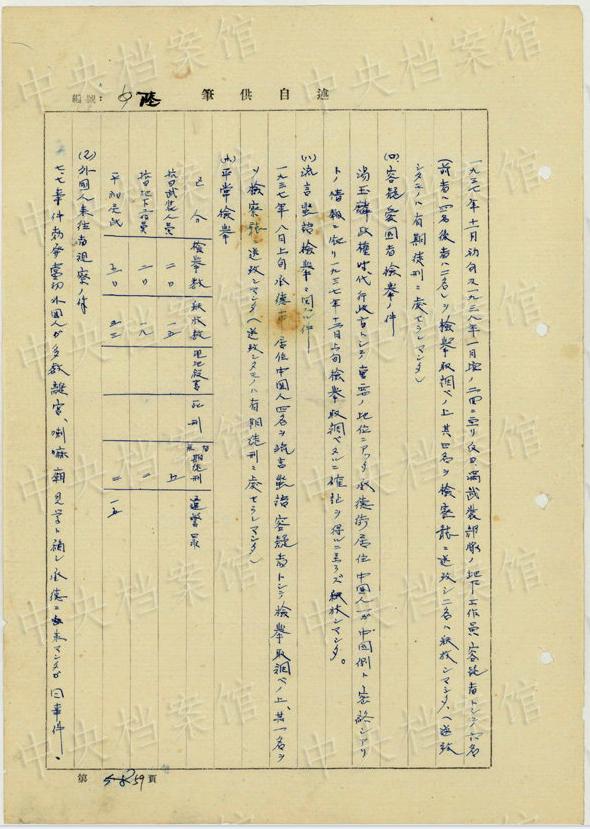 述自供筆
編號：
一九三七年十二月初旬及一九三八年一月頃ノ二回ニ亘リ反日満武装部隊ノ地下工作員容疑者トシテ六名
(前者ハ四名後者ハ二名)ヲ検挙取調ベノ上其四名ヲ検察廳ニ送致シ二名ハ釈放シマシタ、(送致
シタモノハ有期徒刑ニ處セラレマシタ)
(ロ)容疑愛国者検挙ノ件
湯玉麟政権時代行政官トシテ重要ノ地位ニアッタ承徳街居住中国人一が中国側ト密絡シアリ
トノ情報ニ依リ一九三七年十二月上旬検挙取調ベタルニ確証ヲ得ルニ至ラズ釈放シマシタ。
(ハ)流言蜚語検挙ニ関スル件
一九三七年八月上旬承徳市居住中国人四名ヲ流言蜚語容疑者トシテ検挙取調ベノ上、其一名ヲ
検察廳ニ送致シマシタ(送致シタモノハ有期徒刑ニ處セラレマシタ)
平常検挙
区分 検挙数 釈放数 現地殺害 死刑 有期徒刑
抗日武装人員 二〇 一五 五
抗日地下工作員 二〇 一九 一
平和人民
(2)外国人来往者視察ノ件
七七事件勃発當初外国人が多数離宮、喇嘛廟見学ト称シ承徳ニ来マシタガ同事件
第 59 頁
中央档案馆